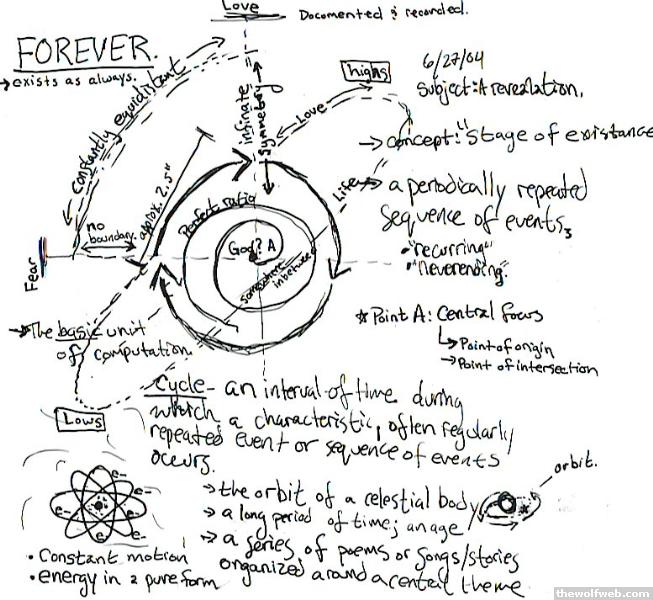 Love
Documented & recorded.
FOREVER.
→ exists as always.
constantly equidistant
infinate
symmetory
Love
highs
6/27/04
Subject: A revealation.
→ concept: "Stage of existance
Life
→ a periodically repeated
sequence of events,
• "recurring"
• "neverending."
no
boundary.
approx. 2.5"
Perfect ratio
God? A
somewhere
inbetween
Fear
* Point A: Central focus
↳ Point of origin
→ Point of intersection
→ The basic unit
of computation.
Lows
Cycle - an interval of time during
which a characteristic, often regularly
repeated event or sequence of events
occurs.
→ the orbit of a celestial body
→ a long period of time; an age
→ a series of poems or songs/stories
organized around a central theme.
orbit.
e-
e-
e-
e-
e-
e-
• Constant motion
• energy in 2 pure form
thewolfweb.com